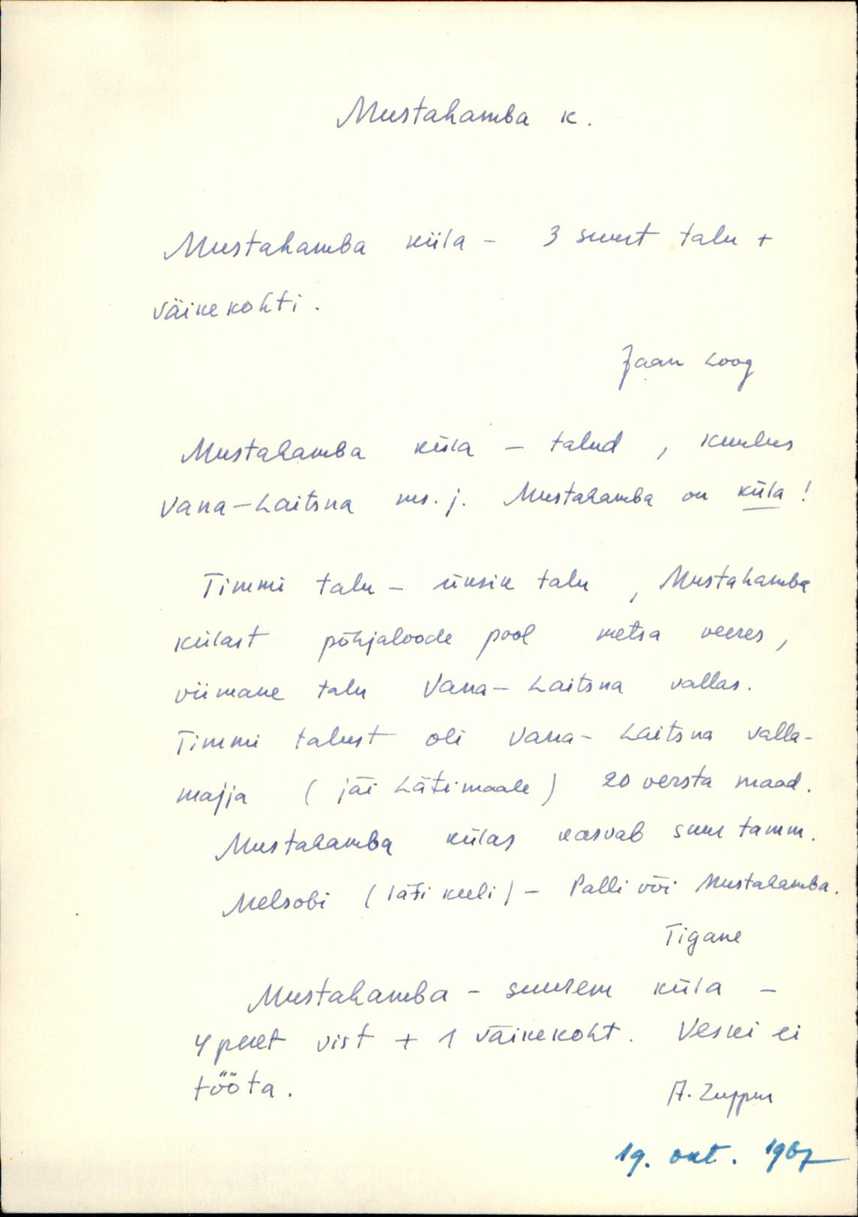 Mustahamba k.
Mustahamba küla – 3 suurt talu +
väikekohti.
Jaan Loog
Mustahamba küla – talud, kuulus
Vana-Laitsna ms. j. Mustahamba on küla!
Timmi talu – üksik talu, Mustahamba
külast põhjaloode pool metsa veeres,
viimane talu Vana-Laitsna vallas.
Timmi talust oli Vana-Laitsna valla-
majja (jäi Lätimaale) 20 versta maad.
Mustahamba külas kasvab suur tamm.
Melsobi (läti keeli) – Palli või Mustahamba.
Tigane
Mustahamba – suurem küla –
4 peret vist + 1 väikekoht. Veski ei
tööta.
A. Zuppur
19. okt. 1967